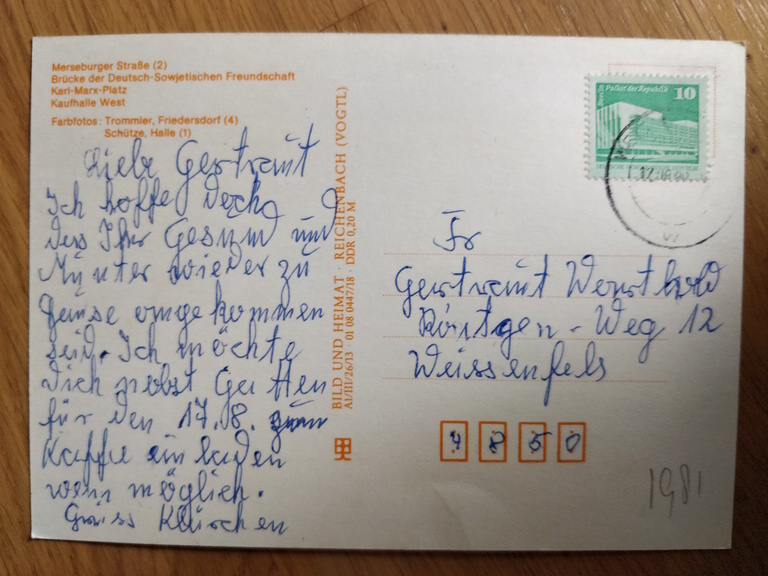 Merseburger Straße (2)
Brücke der Deutsch-Sowjetischen Freundschaft
Karl-Marx-Platz
Kaufhalle West
Farbfotos: Trommler, Friedersdorf (4)
Schütze, Halle (1)
Liebe Gertraut
Ich hoffe doch
das Ihr Gesund und
Munter wieder zu
Hause angekommen
seid. Ich möchte
Dich nebst Gatten
für den 17.8. zum
Kaffee einladen
wenn möglich.
Gruss Klärchen
BILD UND HEIMAT · REICHENBACH (VOGTL)
A1/III/26/13 01 08 0447/18 · DDR 0,20 M
Palast der Republik
10
Fr
Gertraut
Röntgen-Weg 12
Weissenfels
4850
1981